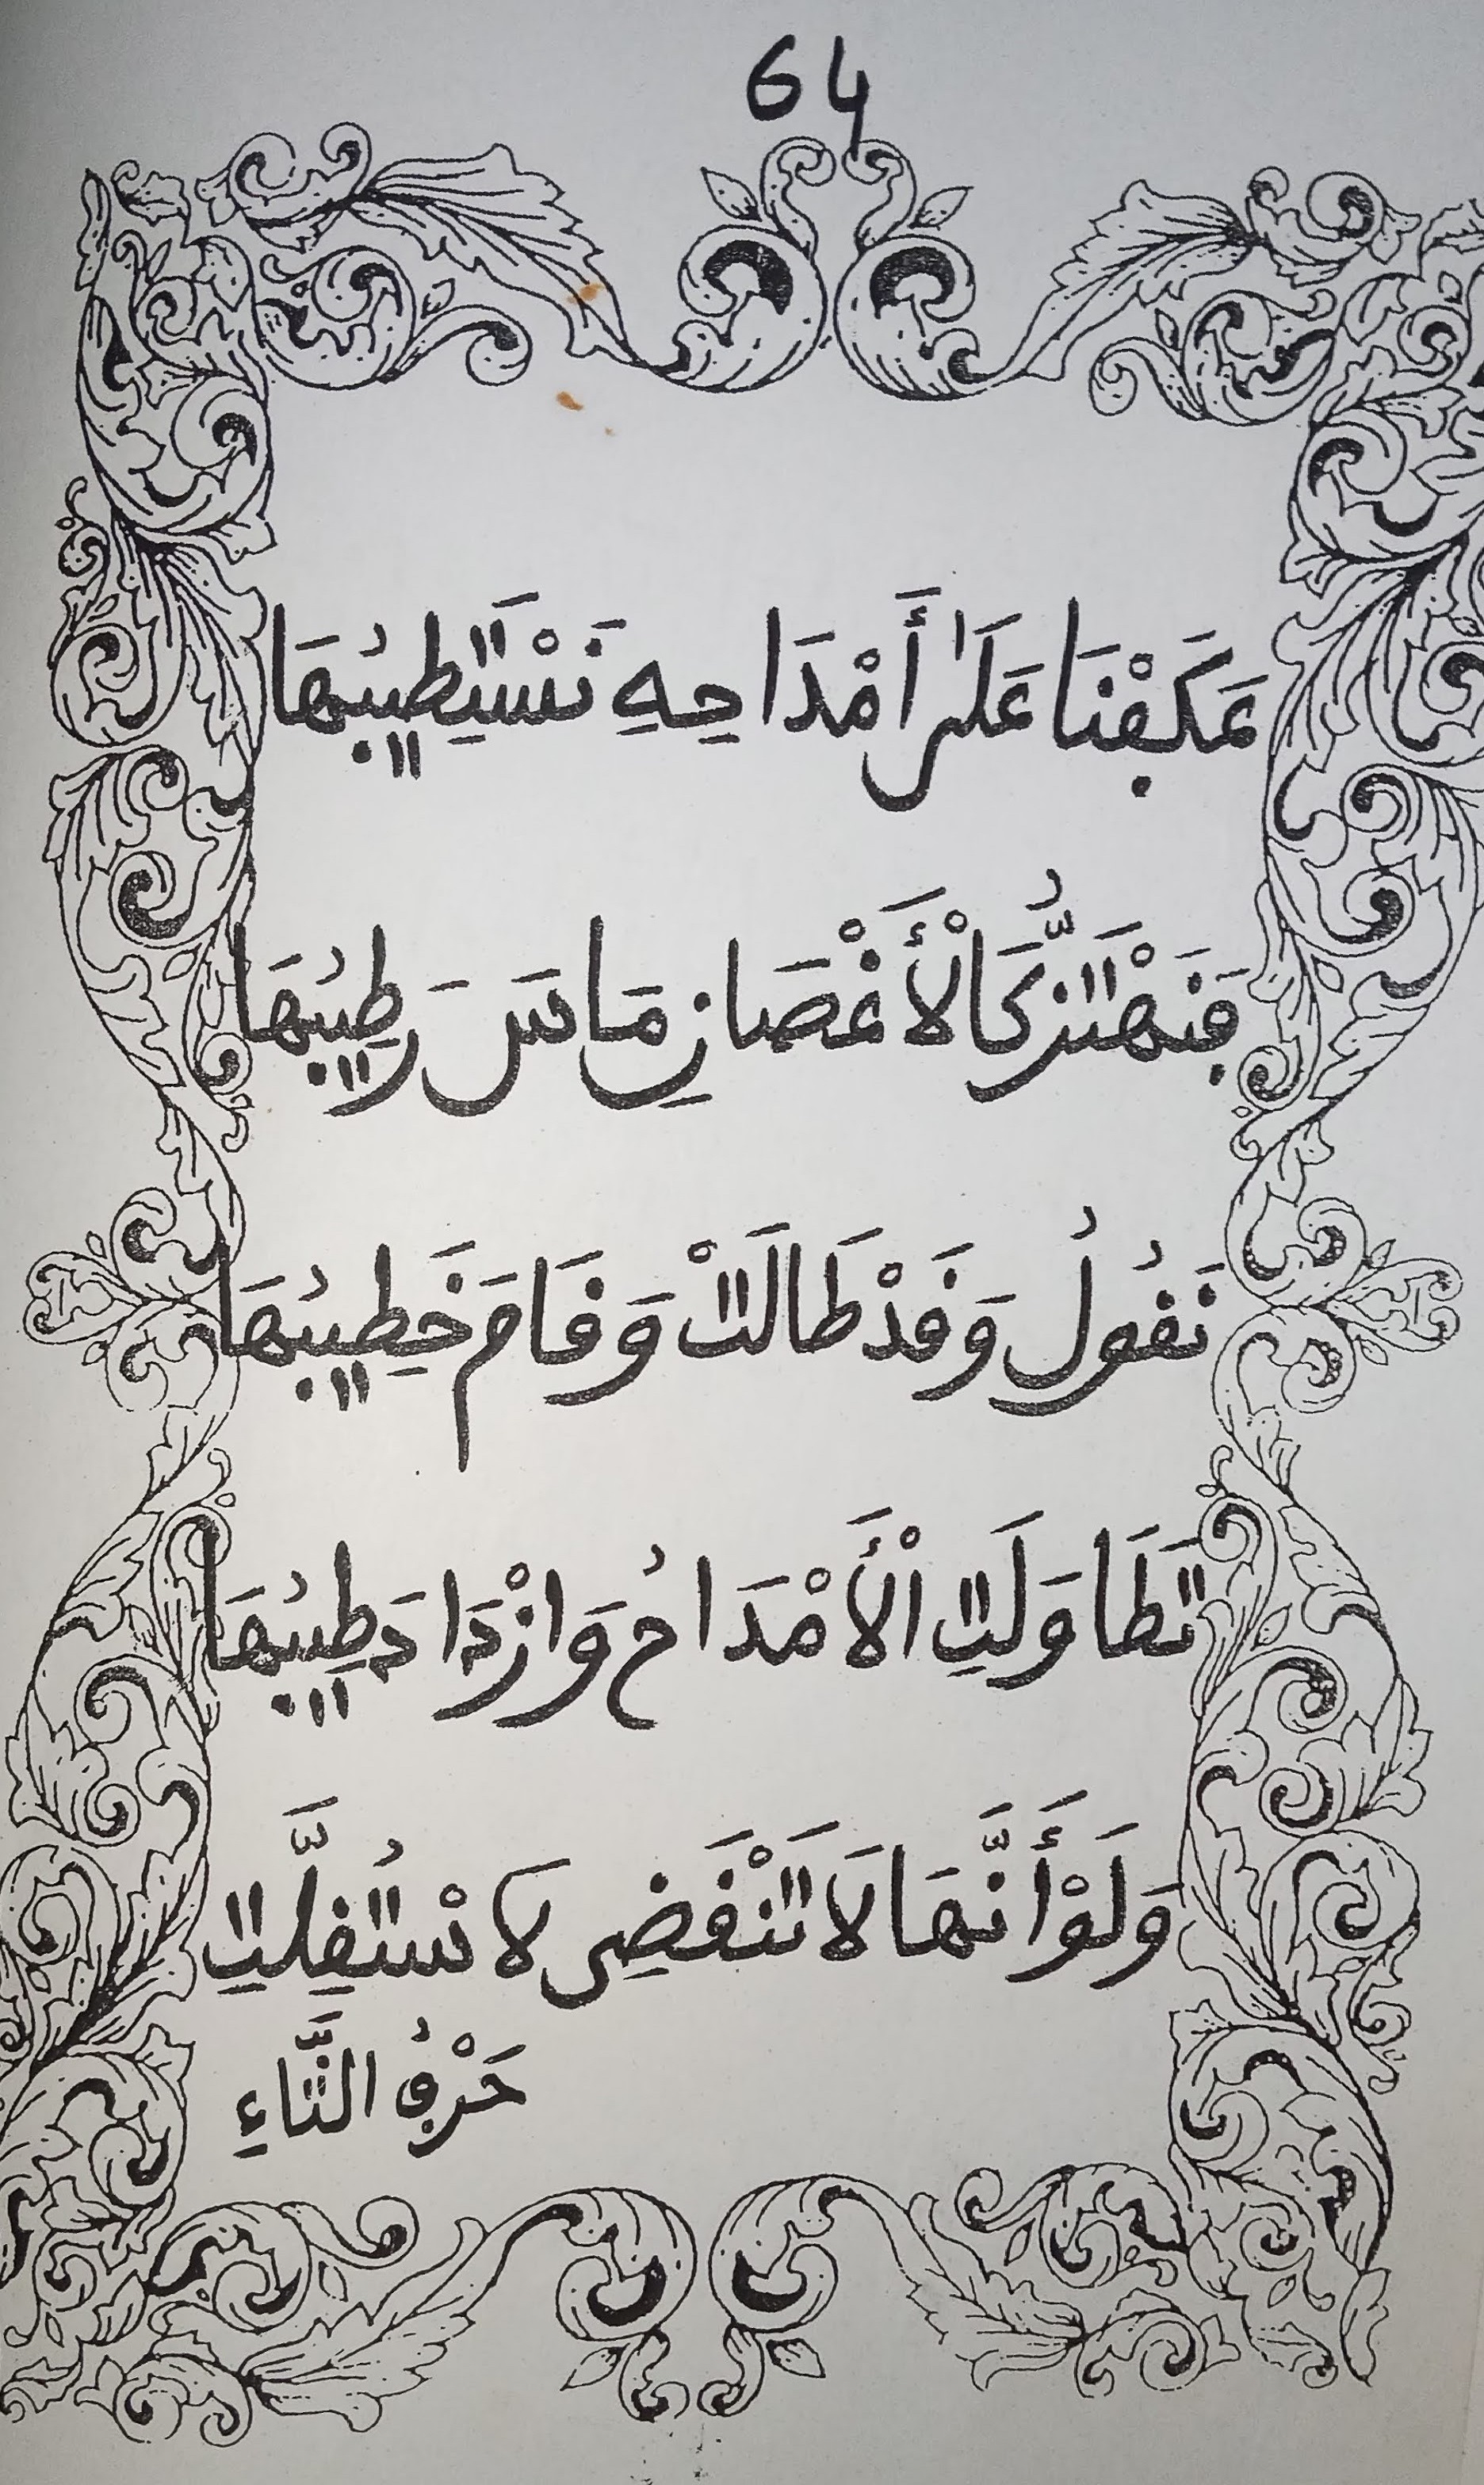 64
عَكَفْنَا عَلَىٰ أَمْدَاحِهِ نَسْتَطِيبُهَا
فَنَهْتَزُّ كَالْأَغْصَانِ مَاسَ رَطِيبُهَا
نَقُولُ وَقَدْ طَالَتْ وَقَامَ خَطِيبُهَا
تَطَاوَلَتِ الْأَمْدَاحُ وَازْدَادَ طِيبُهَا
وَلَوْ أَنَّهَا لَا تَنْقَضِي لَاسْتُقِلَّتِ
حَرْفُ الثَّاءِ